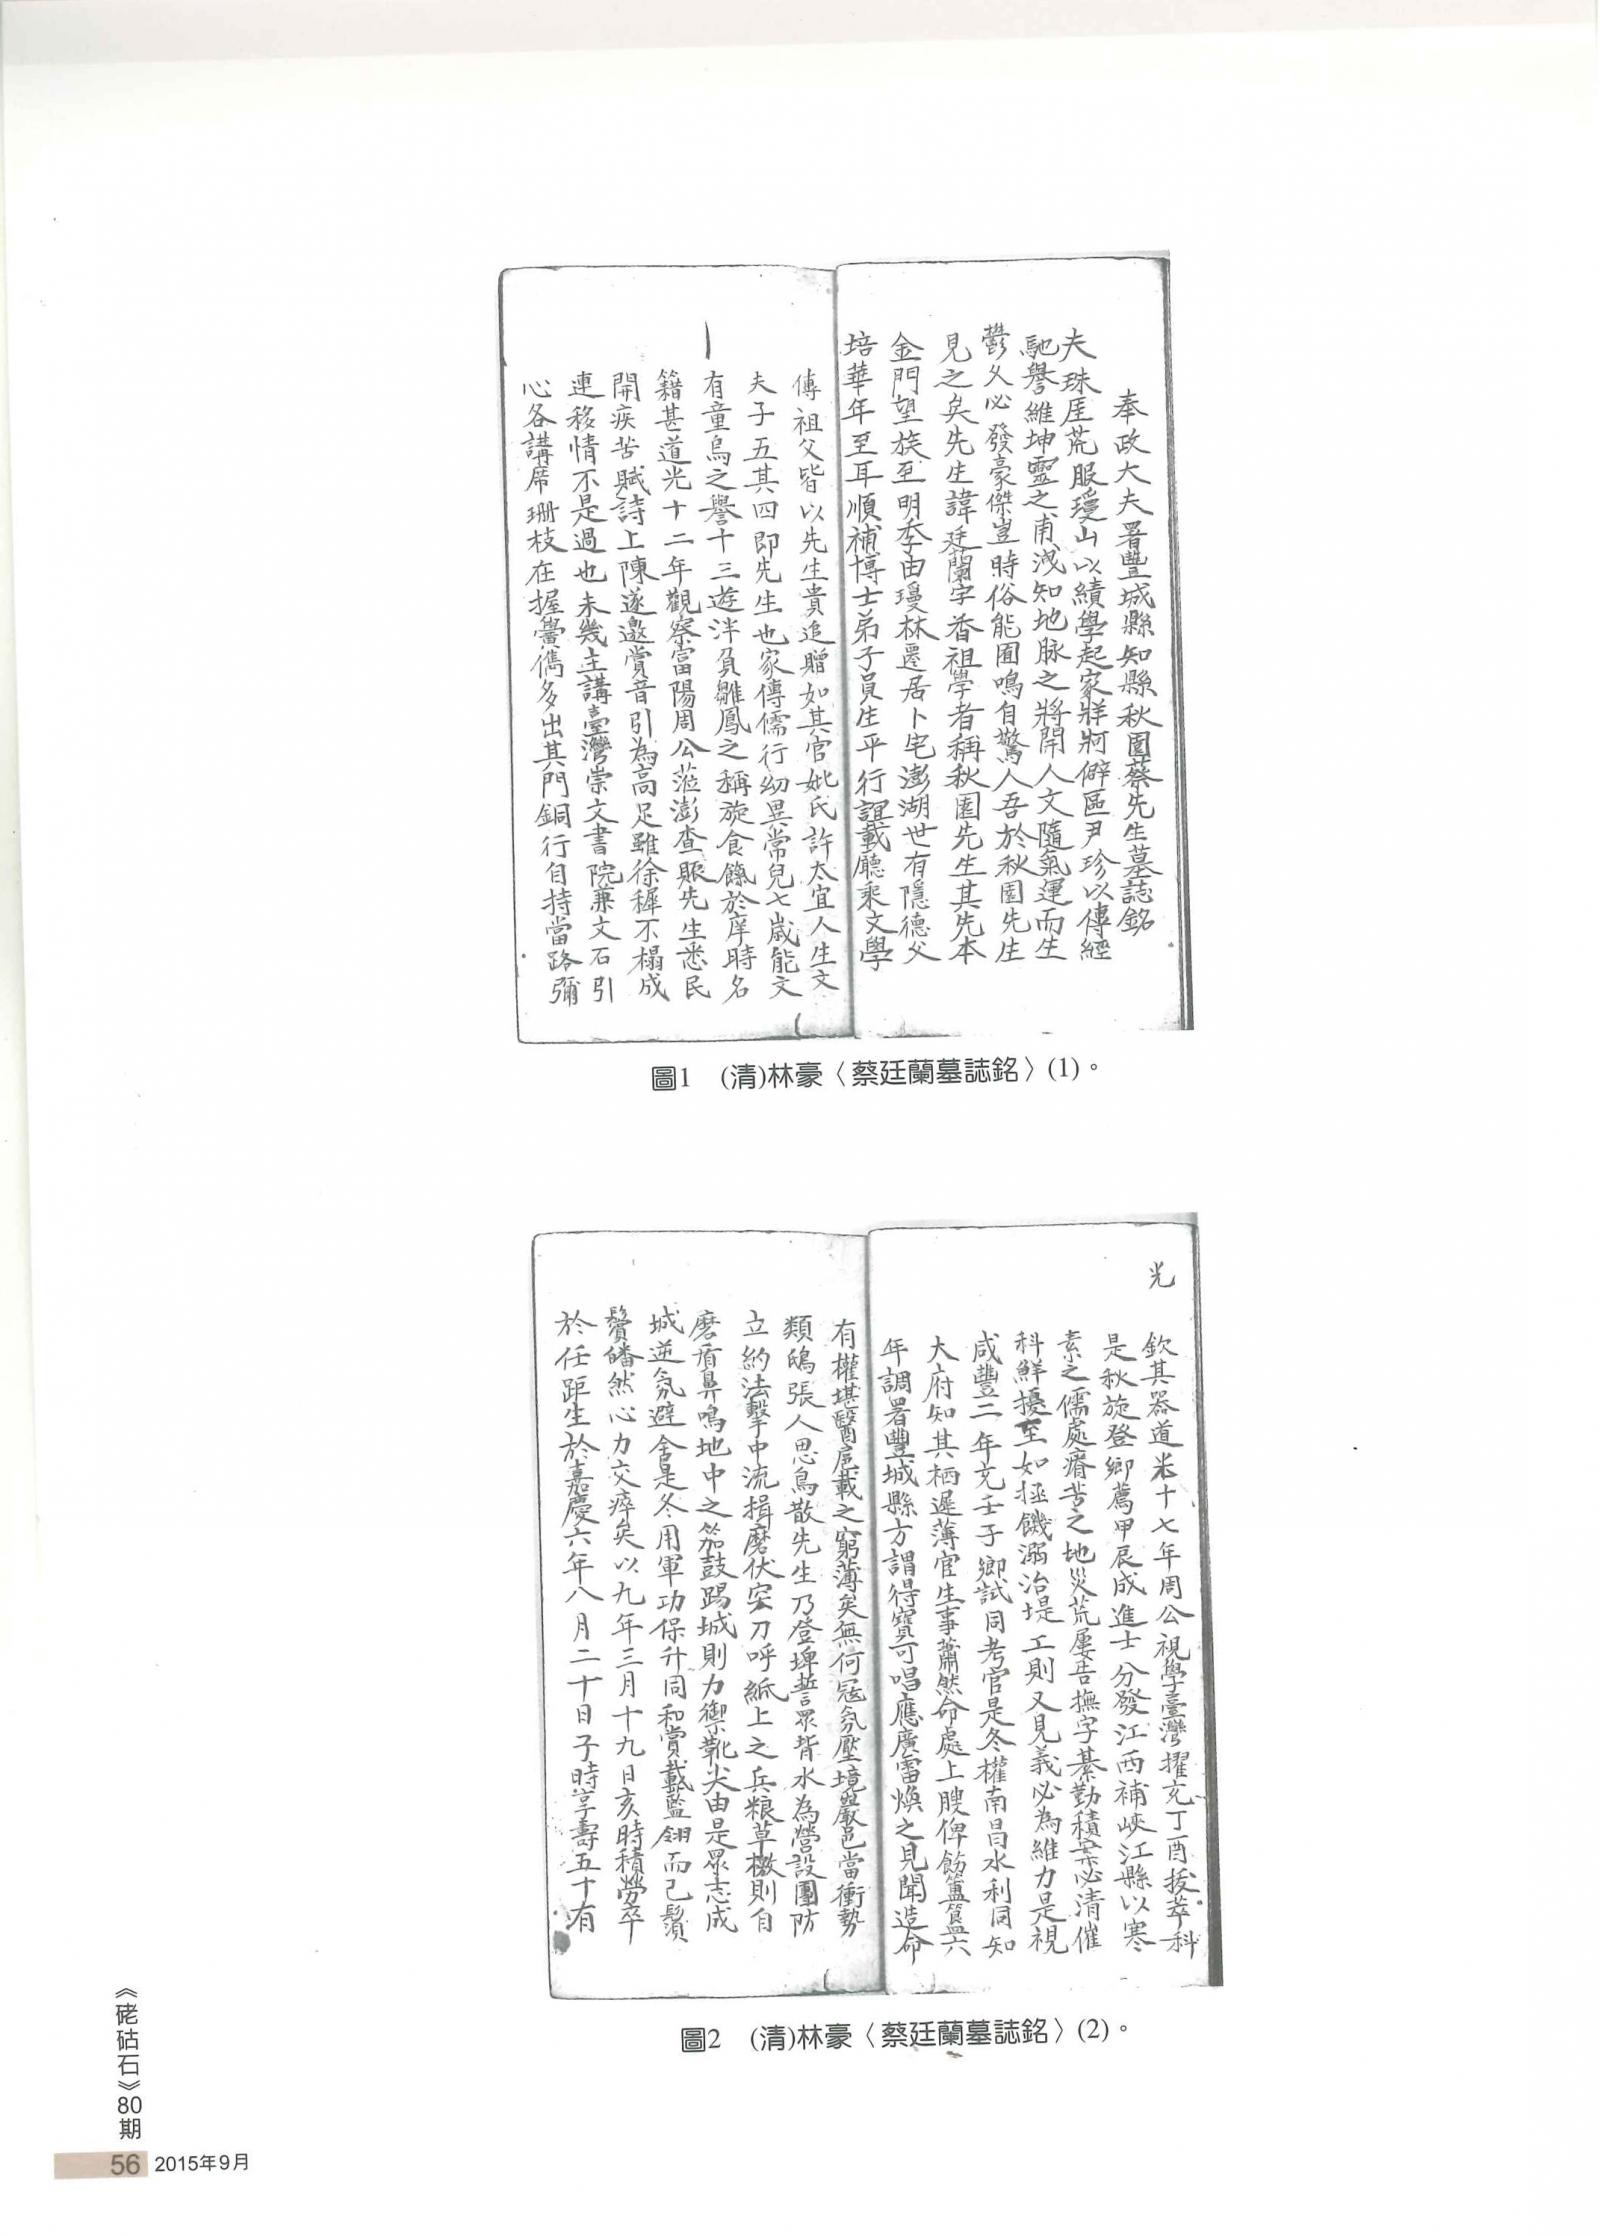 奉政大夫署豐城縣知縣秋園蔡先生墓誌銘
夫珠厓荒服瓊山以績學起家牂牁僻區尹珍以傳經
馳譽維坤靈之甫洩知地脉之將開人文隨氣運而生
鬱久必發豪傑豈時俗能囿鳴自驚人吾於秋園先生
見之矣先生諱廷蘭字香祖學者稱秋園先生其先本
金門望族至明季由瓊林遷居卜宅澎湖世有隱德父
培華年至耳順補博士弟子員生平行誼載廳乘文學
傳祖父皆以先生貴追贈如其官妣氏許太宜人生丈
夫子五其四即先生也家傳儒行幼異常兒七歲能文
有童烏之譽十三遊泮負雛鳳之稱旋食餼於庠時名
籍甚道光十二年觀察富陽周公蒞澎查賑先生悉民
間疾苦賦詩上陳遂邀賞音引為高足雖徐穉不榻成
連移情不是過也未幾主講臺灣崇文書院兼文石引
心各講席珊枝在握黌儁多出其門銅行自持當路彌
光
欽其器道米十七年周公視學臺灣擢充丁酉拔萃科
是秋旋登鄉薦甲辰成進士分發江西補峽江縣以寒
素之儒處瘠苦之地災荒屢告撫字綦勤積案必清催
科鮮擾至如拯饑溺治堤工則又見義必為維力是視
咸豐二年充壬子鄉試同考官是冬權南昌水利同知
大府知其栖遲薄宦生事蕭然命處上腴俾飭簠簋六
年調署豐城縣方謂得寶可唱應廣雷煥之見聞造命
有權堪醫扈載之窮薄矣無何寇氛壓境嚴邑當衝勢
類鴟張人思鳥散先生乃登埤誓眾背水為營設團防
立約法擊中流揖磨伏突刀呼紙上之兵粮草檄則自
磨盾鼻鳴地中之笳鼓踢城則力禦靴尖由是眾志成
城逆氛避舍是冬用軍功保升同和賞戴藍翎而已鬚
鬢皤然心力交瘁矣以九年三月十九日亥時積勞卒
於任距生於嘉慶六年八月二十日子時享壽五十有
圖1　(清)林豪〈蔡廷蘭墓誌銘〉(1)。
圖2　(清)林豪〈蔡廷蘭墓誌銘〉(2)。
《硓𥑮石》80期
56 2015年9月